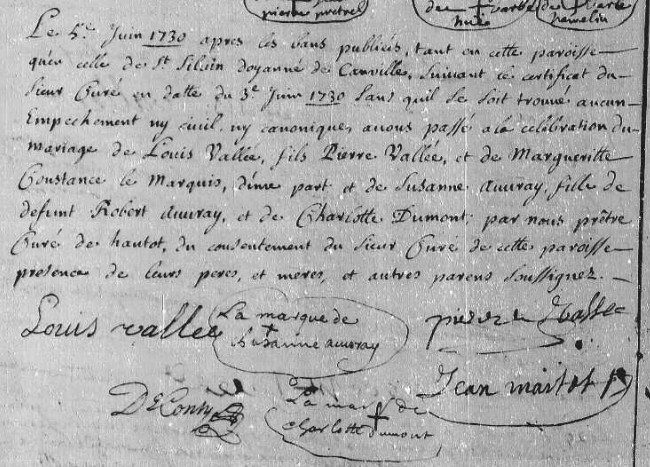 pierre pretrel
Le 5e Juin 1730 apres les bans publiés, tant en cette paroisse
qu'en celle de St Silvin doyanné de Canville, suivant ce certificat du
sieur Curé en datte du 3e Juin 1730 sans quil se soit trouvé aucun
Empechement ny civil, ny canonique, avons passé a la celébration du
mariage de Louis Vallée, fils Pierre Vallée, et de Margueritte
Constance le Marquis, d'une part et de Susanne auvray, fille de
defunt Robert auvray, et de Charlotte Dumont; par nous prêtre
Curé de hautot, du consentement du sieur Curé de cette paroisse
presence de leurs peres, et meres, et autres parens soussignez.
Louis vallee
La marque de
Susanne auvray
pierre
Jean
La mar de
charlotte dumont